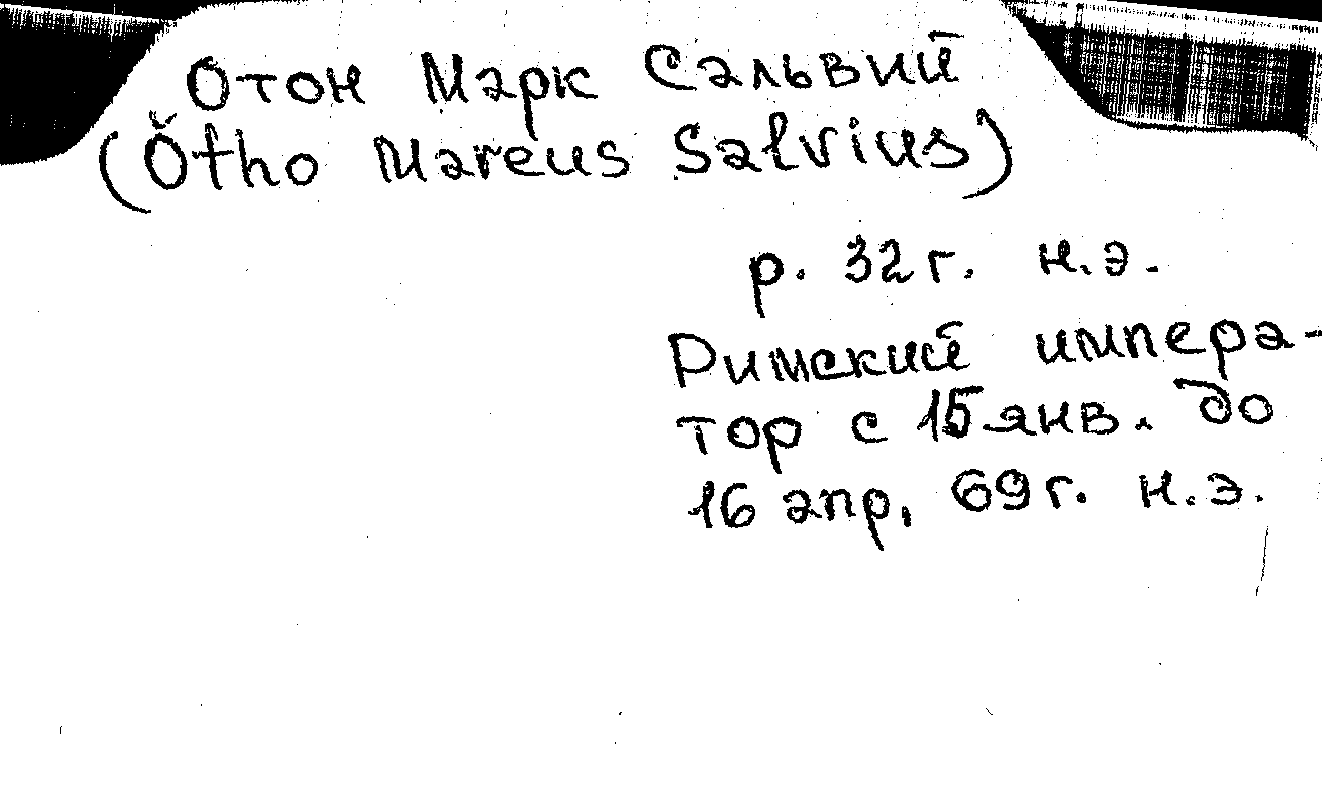 Отон Марк Сальвий
(Ŏtho Mareus Salvius)
р. 32 г. н.э.
Римский импера-
тор с 15 янв. до
16 апр. 69 г. н.э.